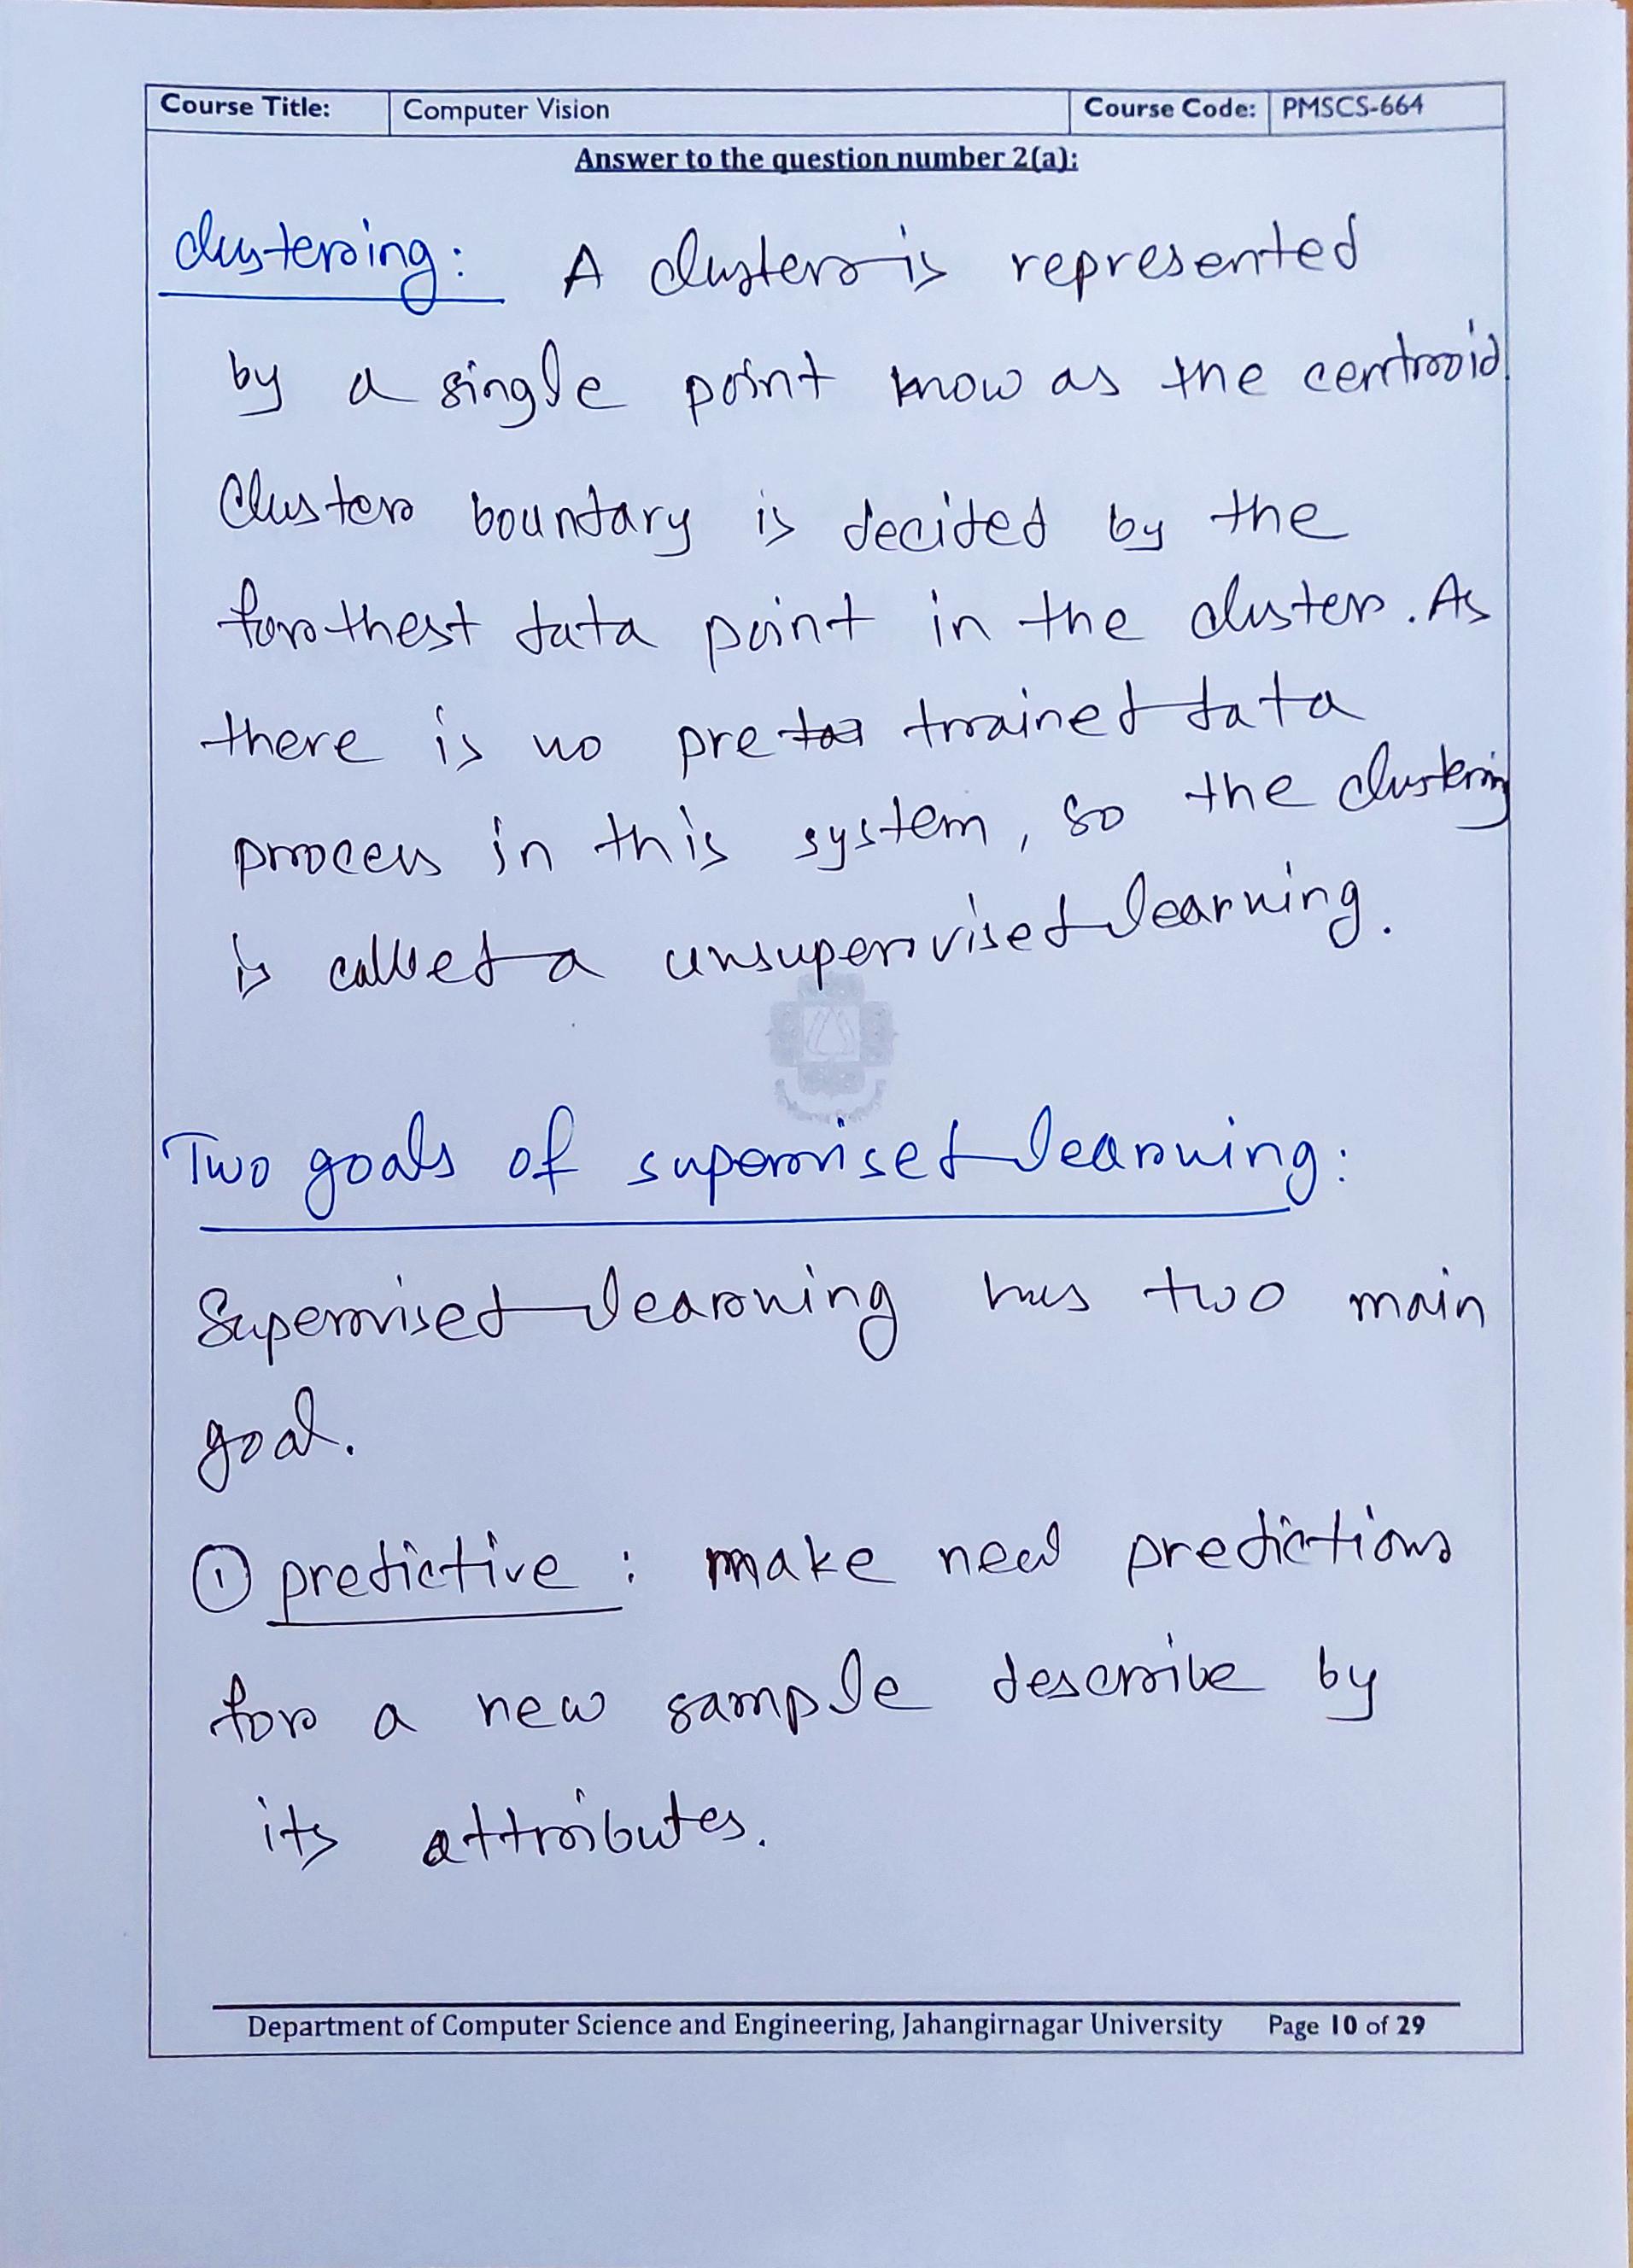 Course Title: Computer Vision Course Code: PMSCS-664
Answer to the question number 2(a):
clustering: A cluster is represented
by a single point know as the centroid
Cluster boundary is decided by the
forthest data point in the cluster. As
there is no pre trained data
process in this system, so the clustering
is called a unsupervised learning.
Two goals of supervised learning:
Supervised learning has two main
goal.
① predictive : make new predictions
for a new sample describe by
its attributes.
Department of Computer Science and Engineering, Jahangirnagar University Page 10 of 29